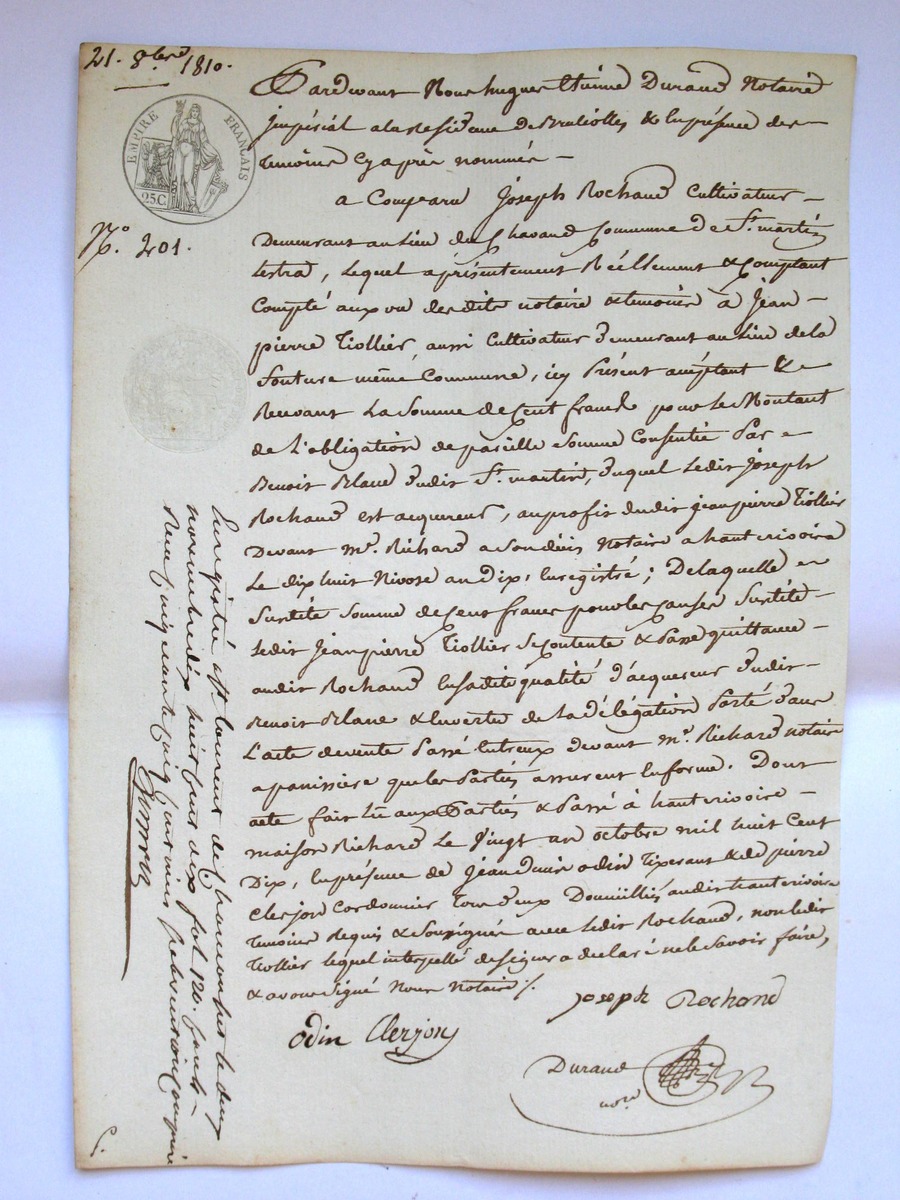 21. 8bre 1810.
EMPIRE FRANÇAIS
25C.
N.º 201.
Pardevant Nous hugues Etienne Durand Notaire
Impérial a la Residence de Brulliolles & En présence des
temoins Cy après nommés
a Comparu Joseph Rochand Cultivateur
Demeurant au Lieu du Chavand Commune de St. martin
Lestra, Lequel a présentement Réellement & Comptant
Compté aux vu desdits notaire & temoins à Jean
pierre Tiollier, aussi Cultivateur demeurant au Lieu de la
fouture même Commune, icy Présent acceptant &
Recevant La Somme de Cent francs pour Le Montant
de L'obligation de pareille Somme Consentie Par
Benoit Blanc dudit St. martin, duquel Ledit Joseph
Rochand est acquereur, au profit dudit jean pierre Tiollier
Devant Mr. Richard notaire a hauterivoire
Le dix huit Nivose an Dix, Enregistré; De laquelle
Susdite Somme de Cent francs pour les Causes Susdites
Ledit Jean pierre Tiollier Se Contente & Passe quittance
audit Rochand En sa dite qualité d'acquereur dudit
Benoit Blanc & En vertu de La délégation Porté dans
L'acte de vente Passé Entreux devant Mr. Richard notaire
a panissière que les Parties assurent En forme. Dont
acte fait Lu aux Parties & Passé à hauterivoire
maison Richard Le Vingt un octobre mil huit Cent
Dix, En présence de Jean odin Tixerant & de pierre
Clerjon Cordonnier Tous deux Domiciliés audit hauterivoire
temoins Requis & Soussignés avec Ledit Rochand, non Ledit
Tiollier Lequel interpellé de signer a declaré ne le Savoir faire,
& avons Signé Nous Notaire ./.
Joseph Rochand
odin Clerjon
Durand
nore
Enregistré a St. Laurent de Chamousset le deux
novembre dix huit cent dix fol. 120.
Reçu Cinquante Cinq